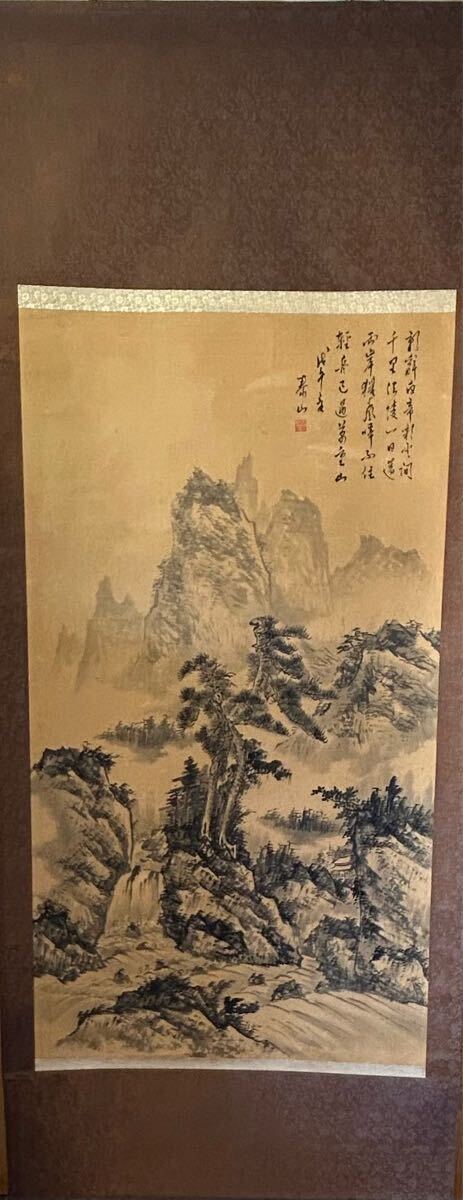 朝辭白帝彩雲間
千里江陵一日還
兩岸猿聲啼不住
輕舟已過萬重山
戊午
山